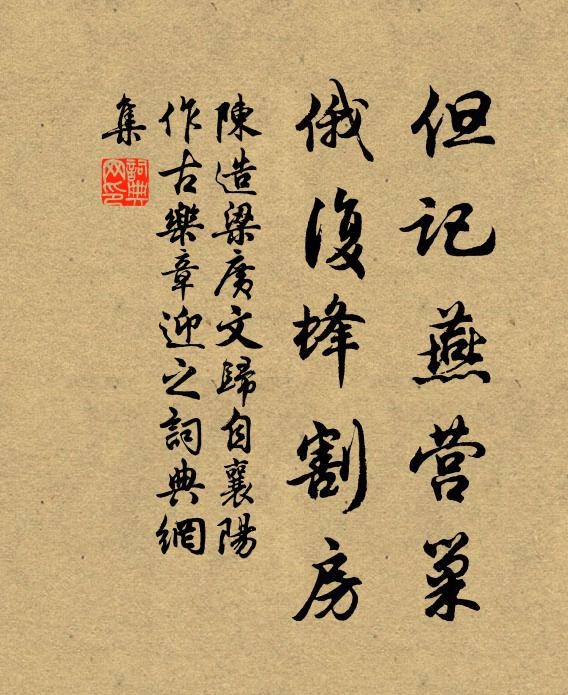 但記燕营巢
俄復蜂割房
陳造梁廣文歸自襄陽
作古樂章迎之詞典網
集
詞典
网印